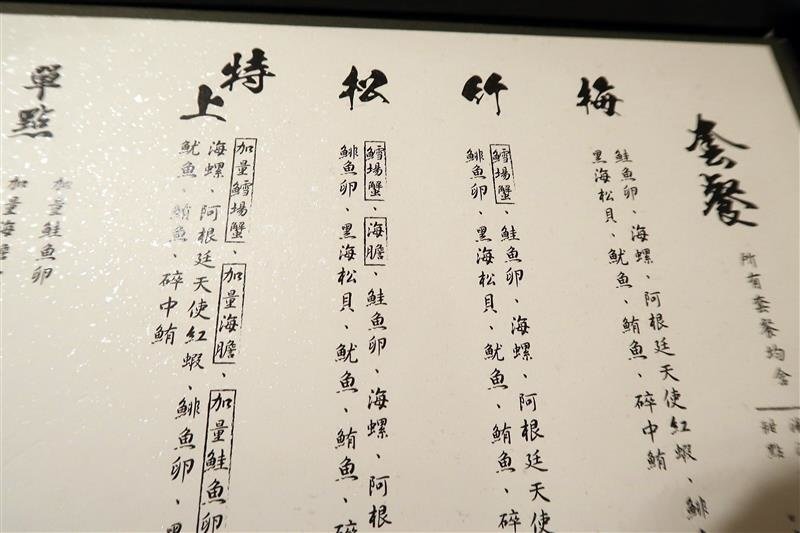 套餐
所有套餐均含
甜點
梅
鮭魚卵、海螺、阿根廷天使紅蝦、鯡
黑海松貝、魷魚、鮪魚、碎中鮪
竹
鱈場蟹、鮭魚卵、海螺、阿根廷天使
鯡魚卵、黑海松貝、魷魚、鮪魚、碎
松
鱈場蟹、海膽、鮭魚卵、海螺、阿根
鯡魚卵、黑海松貝、魷魚、鮪魚、碎
特上
加量鱈場蟹、加量海膽、加量鮭魚卵
海螺、阿根廷天使紅蝦、鯡魚卵、黑
魷魚、鮪魚、碎中鮪
單點
加量鮭魚卵
加量海膽